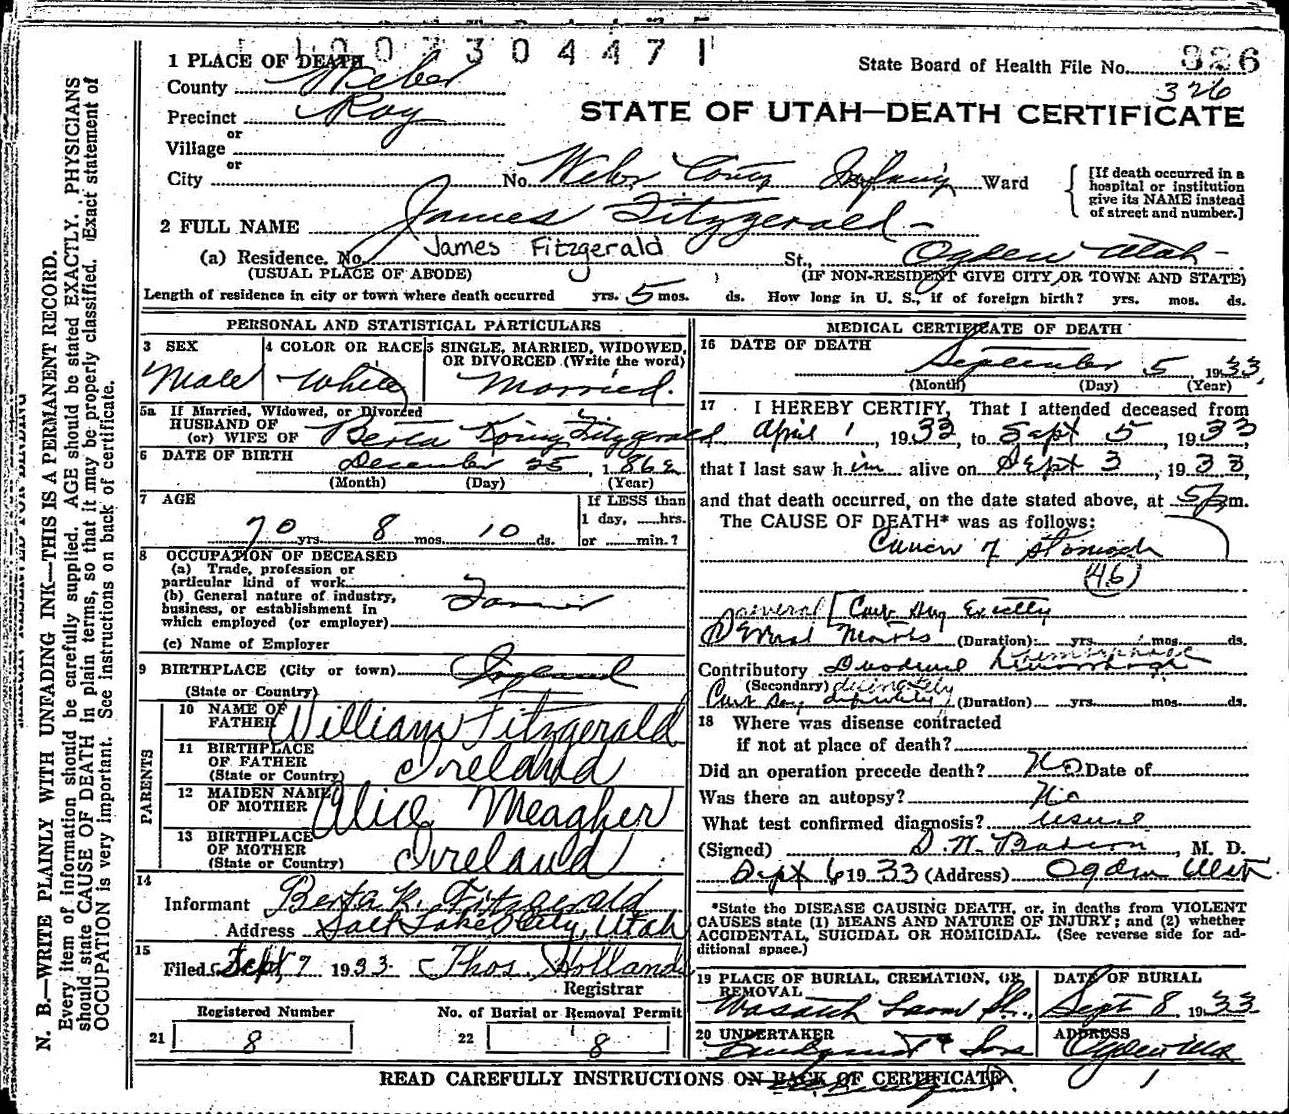 1007304471
1 PLACE OF DEATH
State Board of Health File No. 326
County Weber
326
Precinct Roy
STATE OF UTAH—DEATH CERTIFICATE
or
Village
or
City No. Weber County Infirmary Ward
[If death occurred in a hospital or institution give its NAME instead of street and number.]
2 FULL NAME James Fitzgerald
(a) Residence. No. James Fitzgerald St., Ogden Utah
(USUAL PLACE OF ABODE) (IF NON-RESIDENT GIVE CITY OR TOWN AND STATE)
Length of residence in city or town where death occurred yrs. 5 mos. ds. How long in U. S., if of foreign birth? yrs. mos. ds.
PERSONAL AND STATISTICAL PARTICULARS
3 SEX 4 COLOR OR RACE 5 SINGLE, MARRIED, WIDOWED,
OR DIVORCED (Write the word)
Male White Married.
5a If Married, Widowed, or Divorced
HUSBAND OF
(or) WIFE OF Berta König Fitzgerald
6 DATE OF BIRTH December 25, 1862
(Month) (Day) (Year)
7 AGE If LESS than
1 day, hrs.
70 yrs. 8 mos. 10 ds. or min.?
8 OCCUPATION OF DECEASED
(a) Trade, profession or
particular kind of work
(b) General nature of industry,
business, or establishment in
which employed (or employer)
(c) Name of Employer
9 BIRTHPLACE (City or town)
(State or Country)
PARENTS
10 NAME OF
FATHER William Fitzgerald
11 BIRTHPLACE
OF FATHER
(State or Country) Ireland
12 MAIDEN NAME
OF MOTHER Alice Meagher
13 BIRTHPLACE
OF MOTHER
(State or Country) Ireland
14
Informant Berta K. Fitzgerald
Address Salt Lake City, Utah
15
Filed Sept 7 1933 Thos. Holland
Registrar
Registered Number No. of Burial or Removal Permit
21 8 22 8
MEDICAL CERTIFICATE OF DEATH
16 DATE OF DEATH
September 5, 1933.
(Month) (Day) (Year)
17 I HEREBY CERTIFY, That I attended deceased from
April 1, 1933, to Sept 5, 1933
that I last saw him alive on Sept 3, 1933,
and that death occurred, on the date stated above, at 5 p.m.
The CAUSE OF DEATH* was as follows:
Cancer of Stomach
(46)
several [Can't Say Exactly
Several Months (Duration) yrs. mos. ds.
Contributory hemorrhage
(Secondary) definitely
Can't Say definitely (Duration) yrs. mos. ds.
18 Where was disease contracted
if not at place of death?
Did an operation precede death? No Date of
Was there an autopsy? No
What test confirmed diagnosis? usual
(Signed) M. D.
Sept 6 1933 (Address) Ogden Utah
*State the DISEASE CAUSING DEATH, or, in deaths from VIOLENT
CAUSES state (1) MEANS AND NATURE OF INJURY; and (2) whether
ACCIDENTAL, SUICIDAL OR HOMICIDAL. (See reverse side for ad-
ditional space.)
19 PLACE OF BURIAL, CREMATION, OR
REMOVAL DATE OF BURIAL
Wasatch Lawn Sept 8 1933
20 UNDERTAKER ADDRESS
& Sons Ogden Utah
READ CAREFULLY INSTRUCTIONS ON BACK OF CERTIFICATE
N. B.—WRITE PLAINLY WITH UNFADING INK—THIS IS A PERMANENT RECORD.
Every item of information should be carefully supplied. AGE should be stated EXACTLY. PHYSICIANS
should state CAUSE OF DEATH in plain terms, so that it may be properly classified. Exact statement of
OCCUPATION is very important. See instructions on back of certificate.